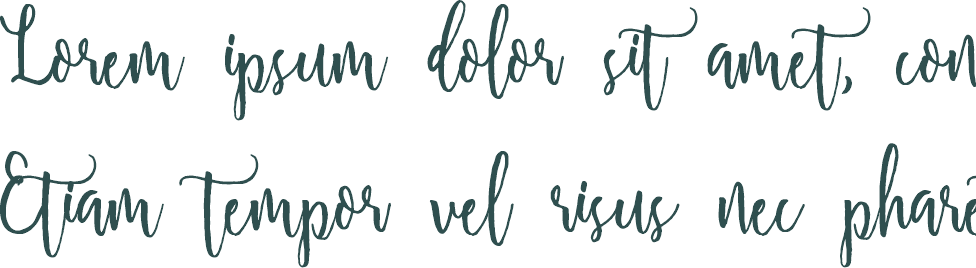 Lorem ipsum dolor sit amet, con
Etiam tempor vel risus nec phare